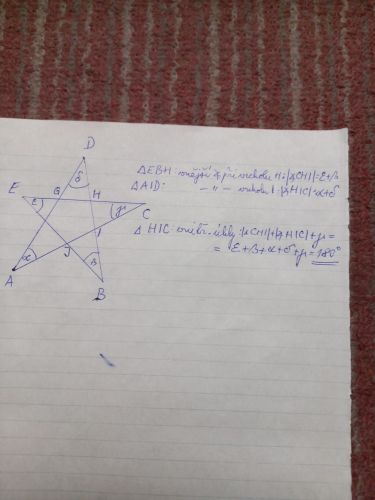 D
δ
E
ε
G
H
γ
C
I
J
α
β
A
B
ΔEBH: vnější ∢ při vrcholu H: |∢CHI| = ε+β
ΔAID: — " — vrcholu I: |∢HIC| = α+δ
Δ HIC: vnitř. úhly: |∢CHI|+|∢HIC|+γ =
= ε+β+α+δ+γ = 180°